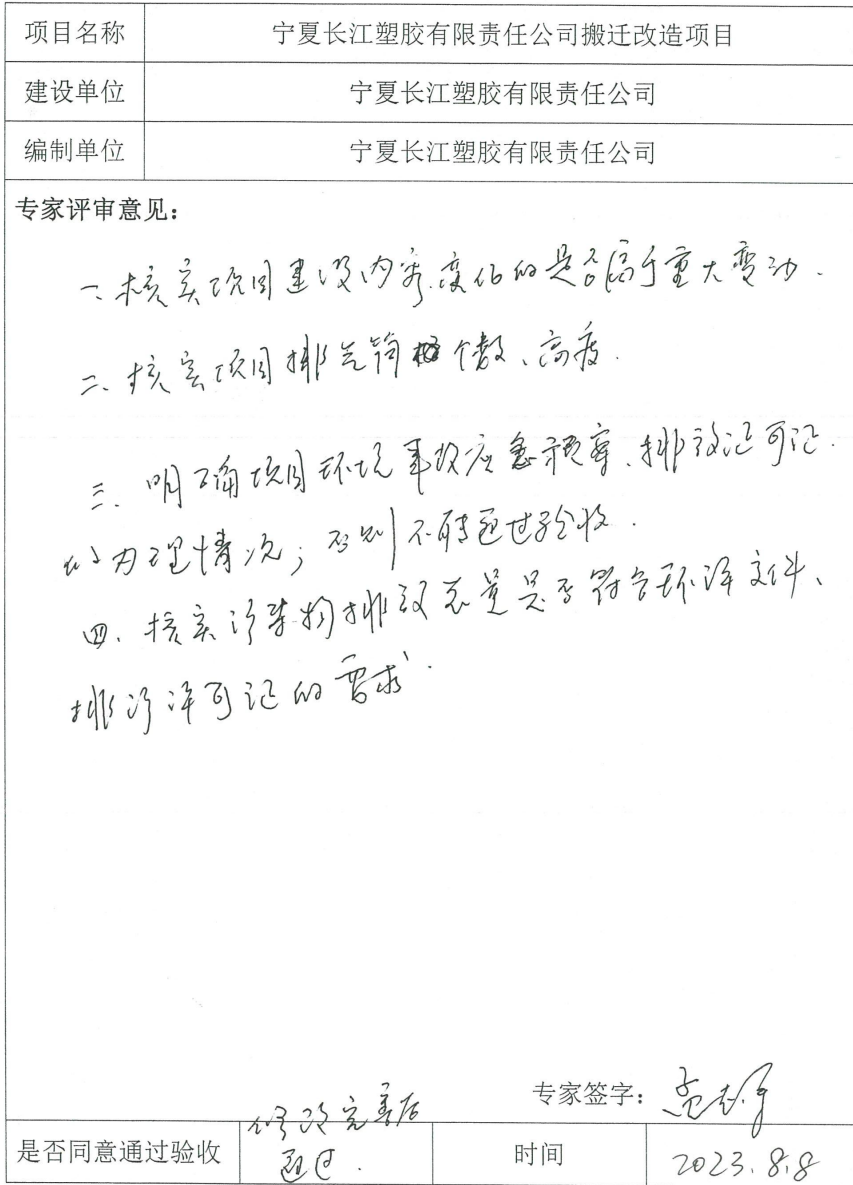 项目名称 宁夏长江塑胶有限责任公司搬迁改造项目
建设单位 宁夏长江塑胶有限责任公司
编制单位 宁夏长江塑胶有限责任公司
专家评审意见：
一、核实项目建设内容变化的是否属于重大变动.
二、核实项目排气筒个数、高度.
三、明确项目环境事故应急预案、排放许可证.
的办理情况；否则不能通过验收.
四、核实污染物排放总量是否符合环评文件、
排污许可证的要求.
专家签字：
是否同意通过验收 修改完善后
通过. 时间 2023.8.8